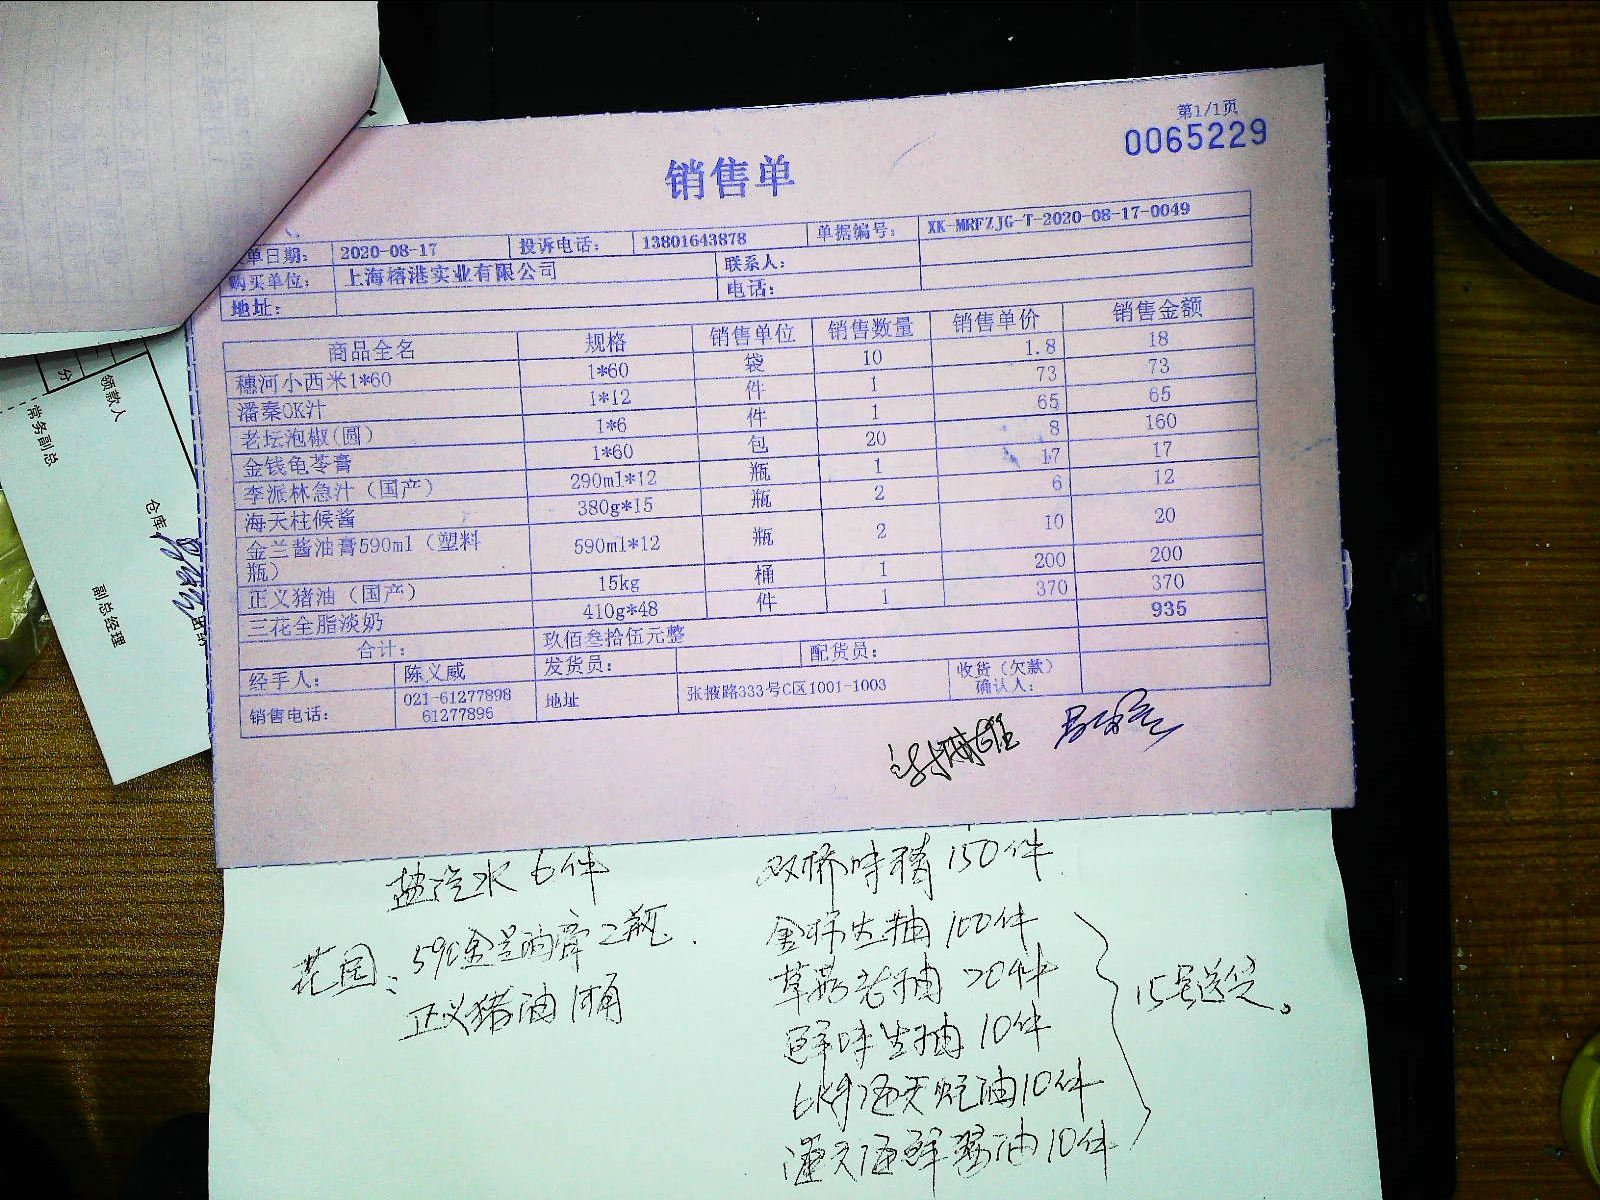 第1/1页
0065229
销售单
单日期： 2020-08-17 投诉电话： 13801643878 单据编号： XK-MRFZJG-T-2020-08-17-0049
购买单位： 上海榕港实业有限公司 联系人：
地址： 电话：
商品全名 规格 销售单位 销售数量 销售单价 销售金额
穗河小西米1*60 1*60 袋 10 1.8 18
潘秦OK汁 1*12 件 1 73 73
老坛泡椒(圆) 1*6 件 1 65 65
金钱龟苓膏 1*60 包 20 8 160
李派林急汁（国产） 290ml*12 瓶 1 17 17
海天柱候酱 380g*15 瓶 2 6 12
金兰酱油膏590ml（塑料 590ml*12 瓶 2 10 20
瓶）
正义猪油（国产） 15kg 桶 1 200 200
三花全脂淡奶 410g*48 件 1 370 370
合计： 玖佰叁拾伍元整 935
经手人： 陈义威 发货员： 配货员： 收货（欠款）
确认人：
销售电话： 021-61277898 地址 张掖路333号C区1001-1003
61277896
分
领款人
常务副总
仓库
副总经理
盐汽水 6件
花园： 590金兰油膏 2瓶
正义猪油 1桶
双桥味精 150件
金标生抽 100件
草菇老抽 20件
鲜味生抽 10件
海天蚝油 10件
海天海鲜酱油 10件
15号送货。